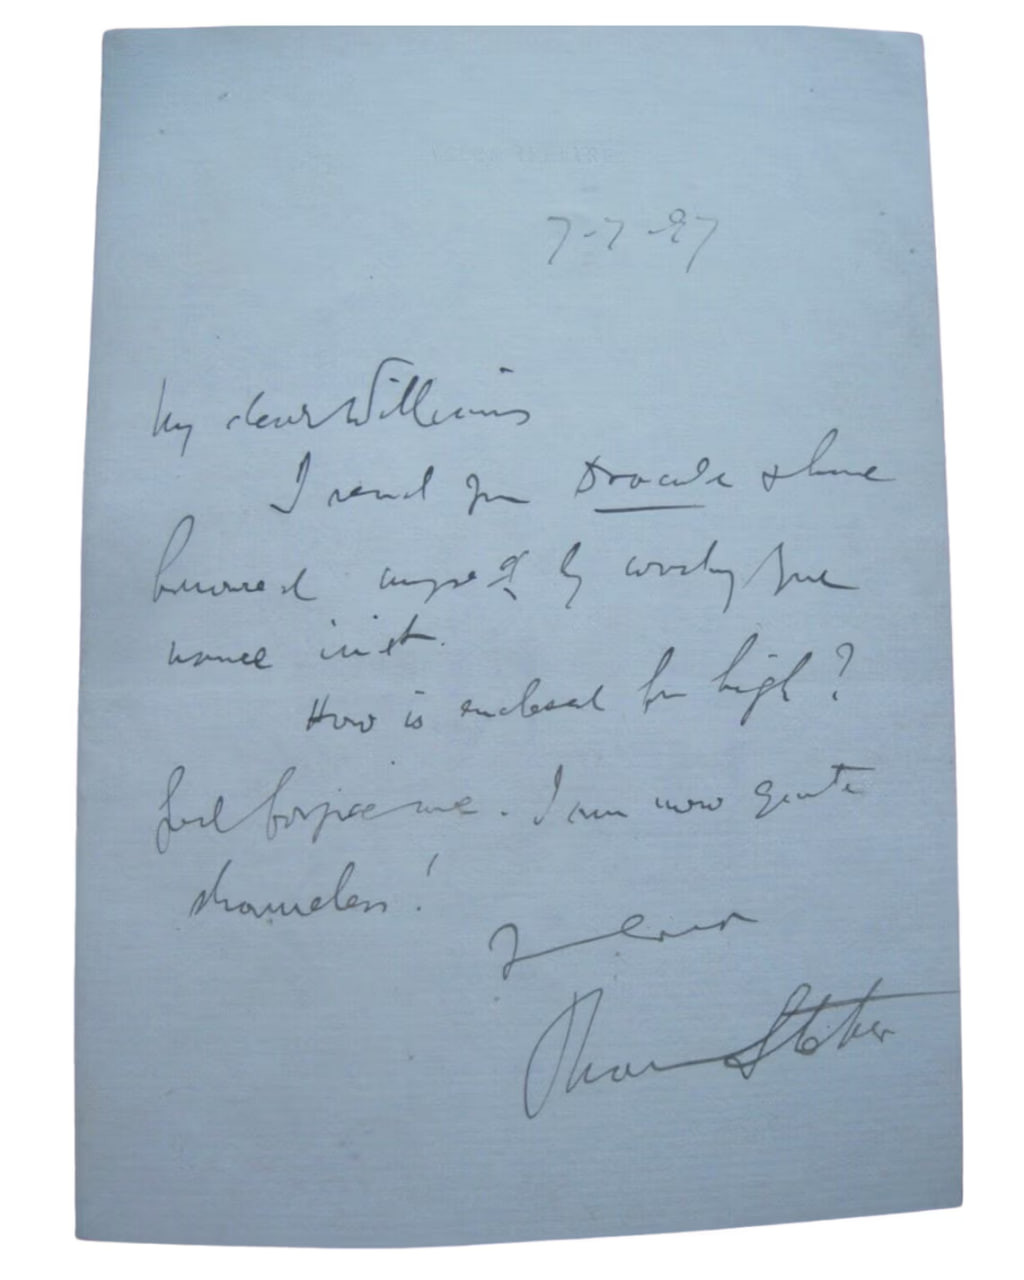 LYCEUM THEATRE
7-7-97
My dear Williams
I send you Dracula & have
honoured myself by writing your
name in it.
How is enclosed for high?
God forgive me. I am now quite
shameless!
Yours ever
Bram Stoker